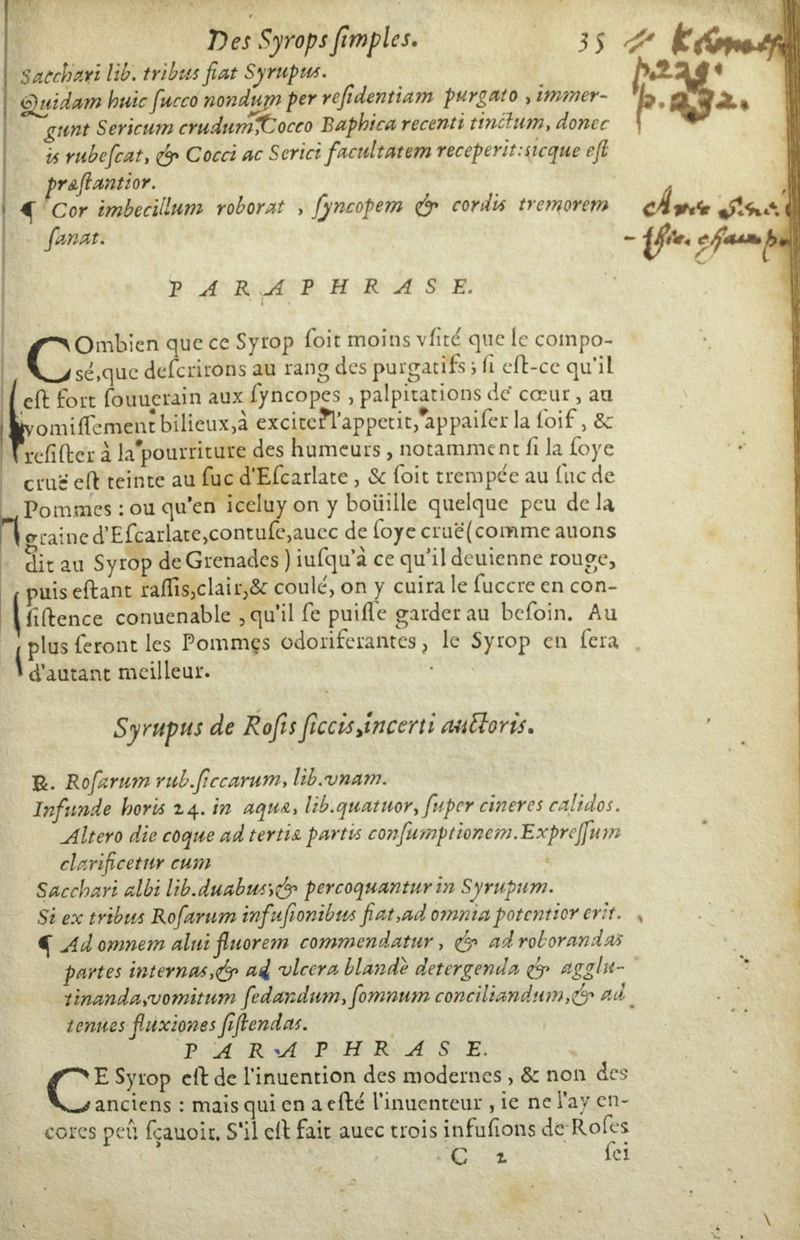 Des Syrops ſimples. 35
Sacchari lib. tribus fiat Syrupus.
Quidam huic ſucco nondum per reſidentiam purgato , immer-
gunt Sericum crudum, Cocco Baphica recenti tinctum, donec
is rubeſcat, & Cocci ac Serici facultatem receperit: sicque eſt
præſtantior.
¶ Cor imbecillum roborat , ſyncopem & cordis tremorem
ſanat.
PARAPHRASE.
COmbien que ce Syrop ſoit moins vſité que le compo-
sé, que deſcrirons au rang des purgatifs ; ſi eſt-ce qu'il
eſt fort ſouuerain aux ſyncopes , palpitations de cœur , au
vomiſſement bilieux, à exciter l'appetit, appaiſer la ſoif , &
reſiſter à la pourriture des humeurs , notamment ſi la ſoye
cruë eſt teinte au ſuc d'Eſcarlate , & ſoit trempée au ſuc de
Pommes : ou qu'en iceluy on y boüille quelque peu de la
graine d'Eſcarlate, contuſe, auec de ſoye cruë (comme auons
dit au Syrop de Grenades ) iuſqu'à ce qu'il deuienne rouge,
puis eſtant raſſis, clair, & coulé, on y cuira le ſuccre en con-
ſiſtence conuenable , qu'il ſe puiſſe garder au beſoin. Au
plus ſeront les Pommes odoriferantes , le Syrop en ſera
d'autant meilleur.
Syrupus de Roſis ſiccis, incerti auctoris.
℞. Roſarum rub. ſiccarum, lib. vnam.
Infunde horis 24. in aquæ, lib. quatuor, ſuper cineres calidos.
Altero die coque ad tertiæ partis conſumptionem. Expreſſum
clarificetur cum
Sacchari albi lib. duabus, & percoquantur in Syrupum.
Si ex tribus Roſarum infuſionibus fiat, ad omnia potentior erit.
¶ Ad omnem alui fluorem commendatur , & ad roborandas
partes internas, & ad vlcera blande detergenda & agglu-
tinanda, vomitum ſedandum, ſomnum conciliandum, & ad
tenues fluxiones ſiſtendas.
PARAPHRASE.
CE Syrop eſt de l'inuention des modernes , & non des
anciens : mais qui en a eſté l'inuenteur , ie ne l'ay en-
cores peû ſçauoir. S'il eſt fait auec trois infuſions de Roſes
C 2 ſei